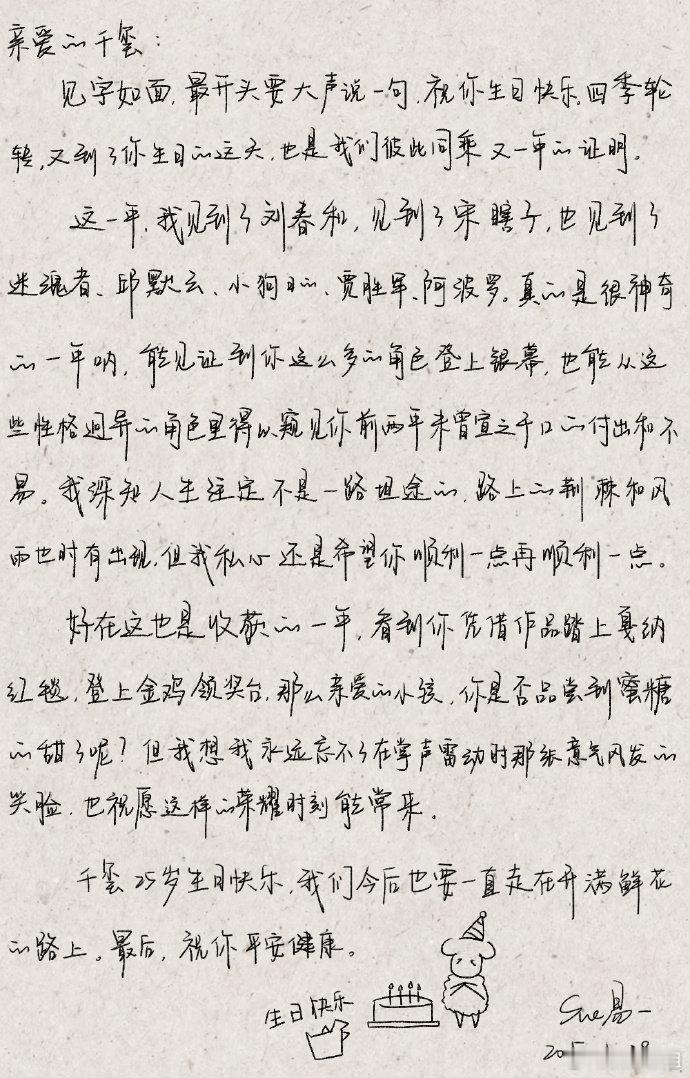 亲爱的千玺：
见字如面，最开头要大声说一句，祝你生日快乐。四季轮
转，又到了你生日的这天，也是我们彼此同乘又一年的证明。
这一年，我见到了刘春和，见到了宋瞎子，也见到了
迷魂者、邱默云、小狗日的、贾胜军、阿波罗。真的是很神奇
的一年呐，能见证到你这么多的角色登上银幕，也能从这
些性格迥异的角色里得以窥见你前两年未曾宣之于口的付出和不
易。我深知人生注定不是一路坦途的，路上的荆棘和风
雨也时有出现，但我私心还是希望你顺利一点再顺利一点。
好在这也是收获的一年，看到你凭借作品踏上戛纳
红毯，登上金鸡领奖台，那么亲爱的小孩，你是否品尝到蜜糖
的甜了呢？但我想我永远忘不了在掌声雷动时那张意气风发的
笑脸，也祝愿这样的荣耀时刻能常来。
千玺25岁生日快乐，我们今后也要一直走在开满鲜花
的路上。最后，祝你平安健康。
生日快乐
易一